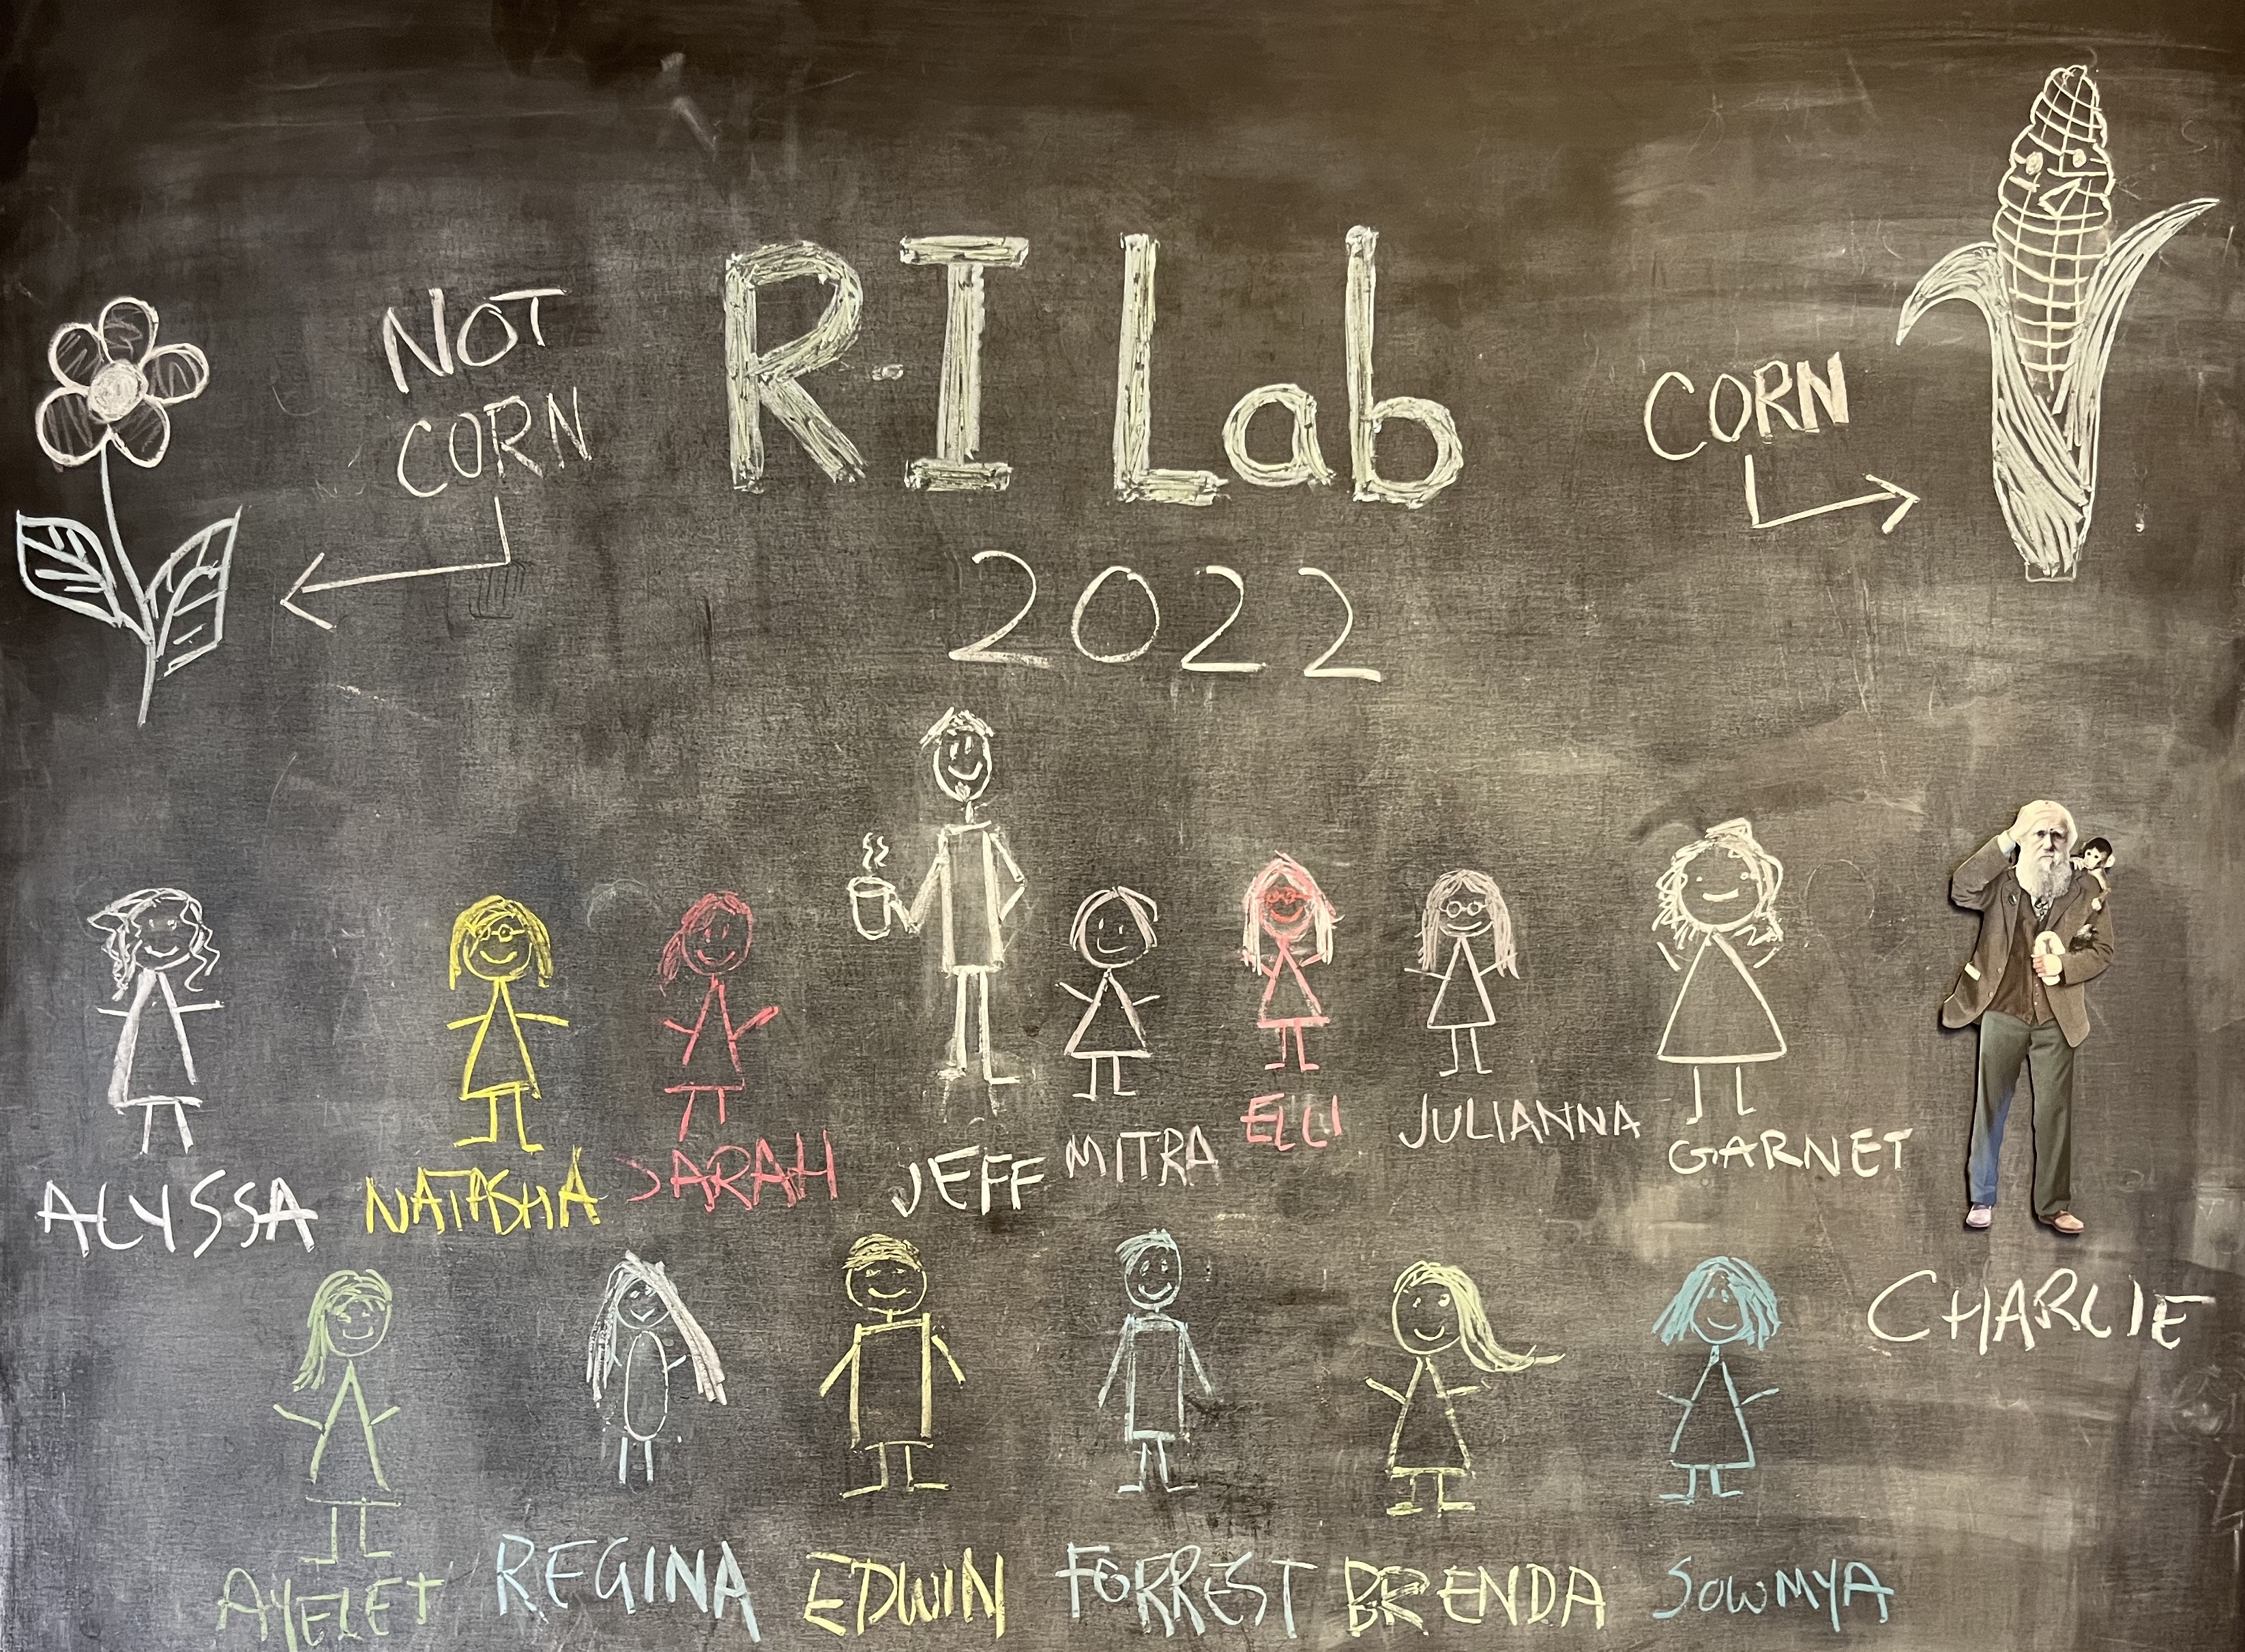 RI Lab
NOT
CORN
CORN
2022
ALYSSA
NATASHA
SARAH
JEFF
MITRA
ELLI
JULIANNA
GARNET
CHARLIE
AYELET
REGINA
EDWIN
FORREST
BRENDA
SOWMYA